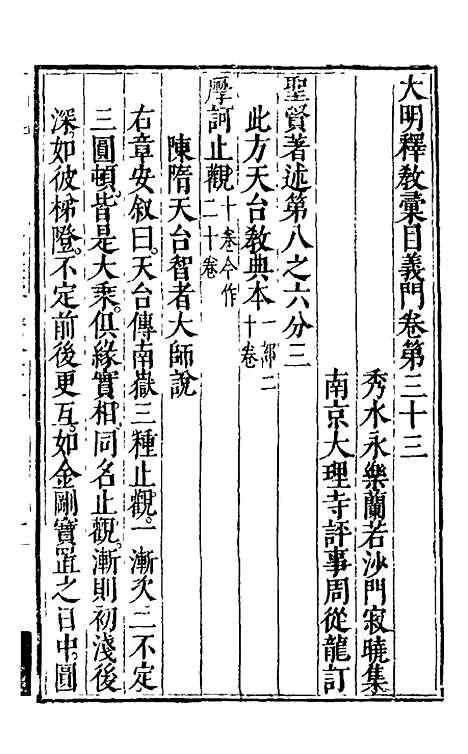 大明釋教彙目義門卷第三十三
秀水永樂蘭若沙門寂曉集
南京大理寺評事周從龍訂
聖賢著述第八之六分三
此方天台教典本一部二十卷
摩訶止觀十卷今作二十卷
陳隋天台智者大師說
右章安叙曰。天台傳南嶽三種止觀。一漸次二不定
三圓頓。皆是大乘。俱緣實相。同名止觀。漸則初淺後
深如彼梯隥。不定前後更互。如金剛寶置之日中。圓